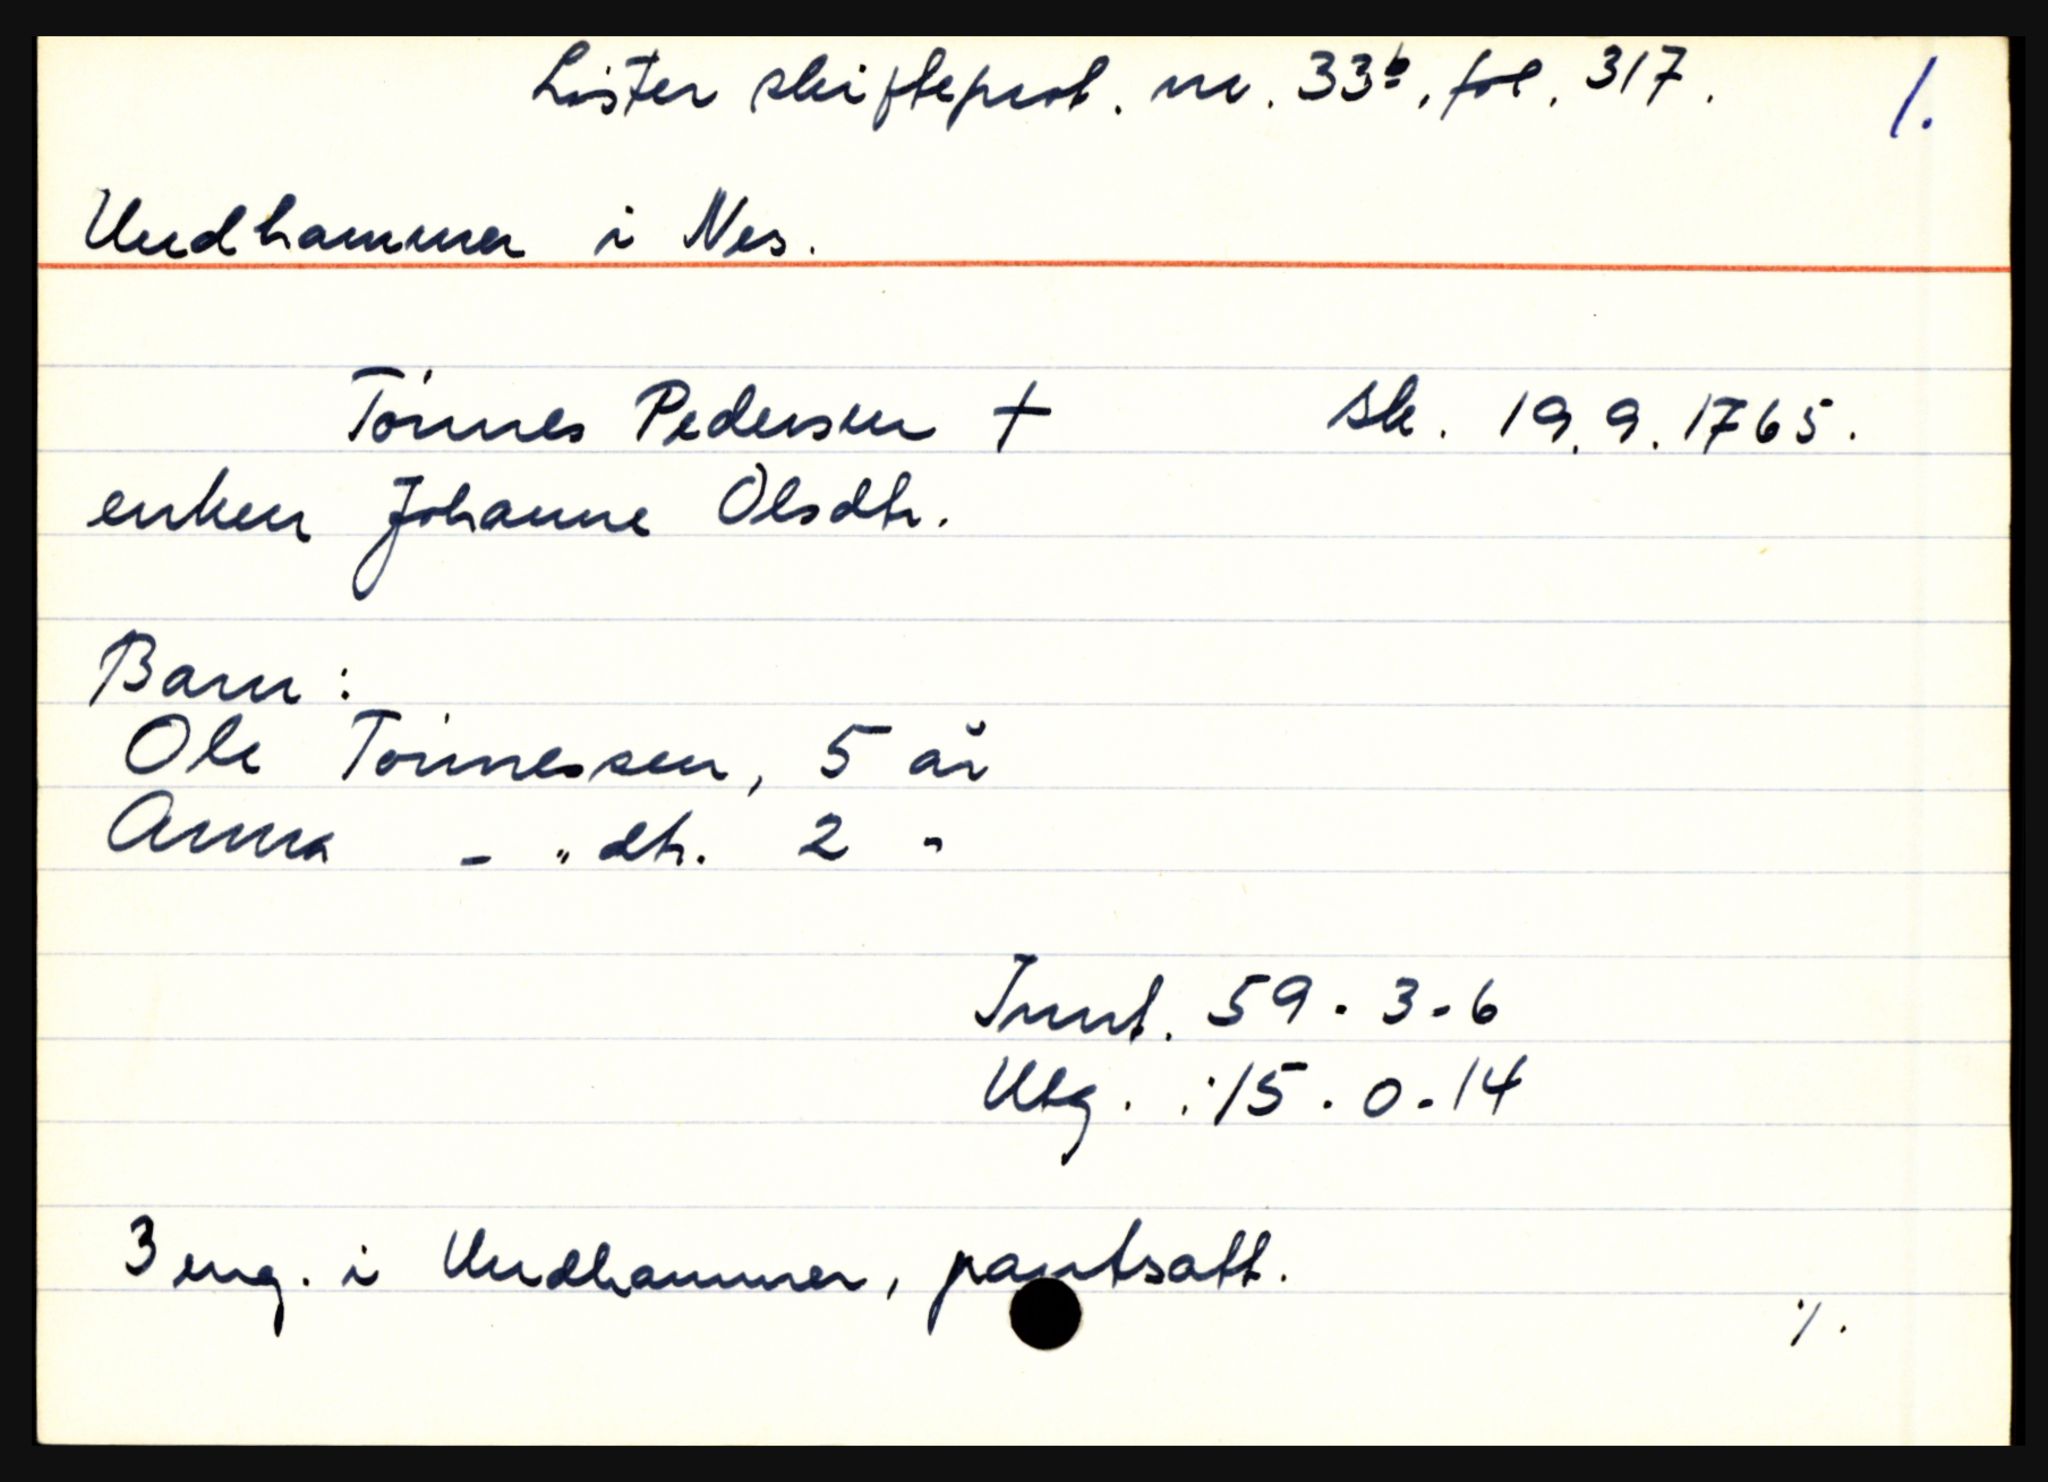 Lister skifteprot. nr. 33b, fol. 317. 1.
Undhammer i Nes.
Tönnes Pedersen † sk. 19.9.1765.
enken Johanne Olsdtr.
Barn:
Ole Tönnessen, 5 år
Anna - " dtr. 2 "
Innt. 59 - 3 - 6
Utg. : 15 - 0 - 14
3 eng. i Undhammer, pantsatt.
·/.